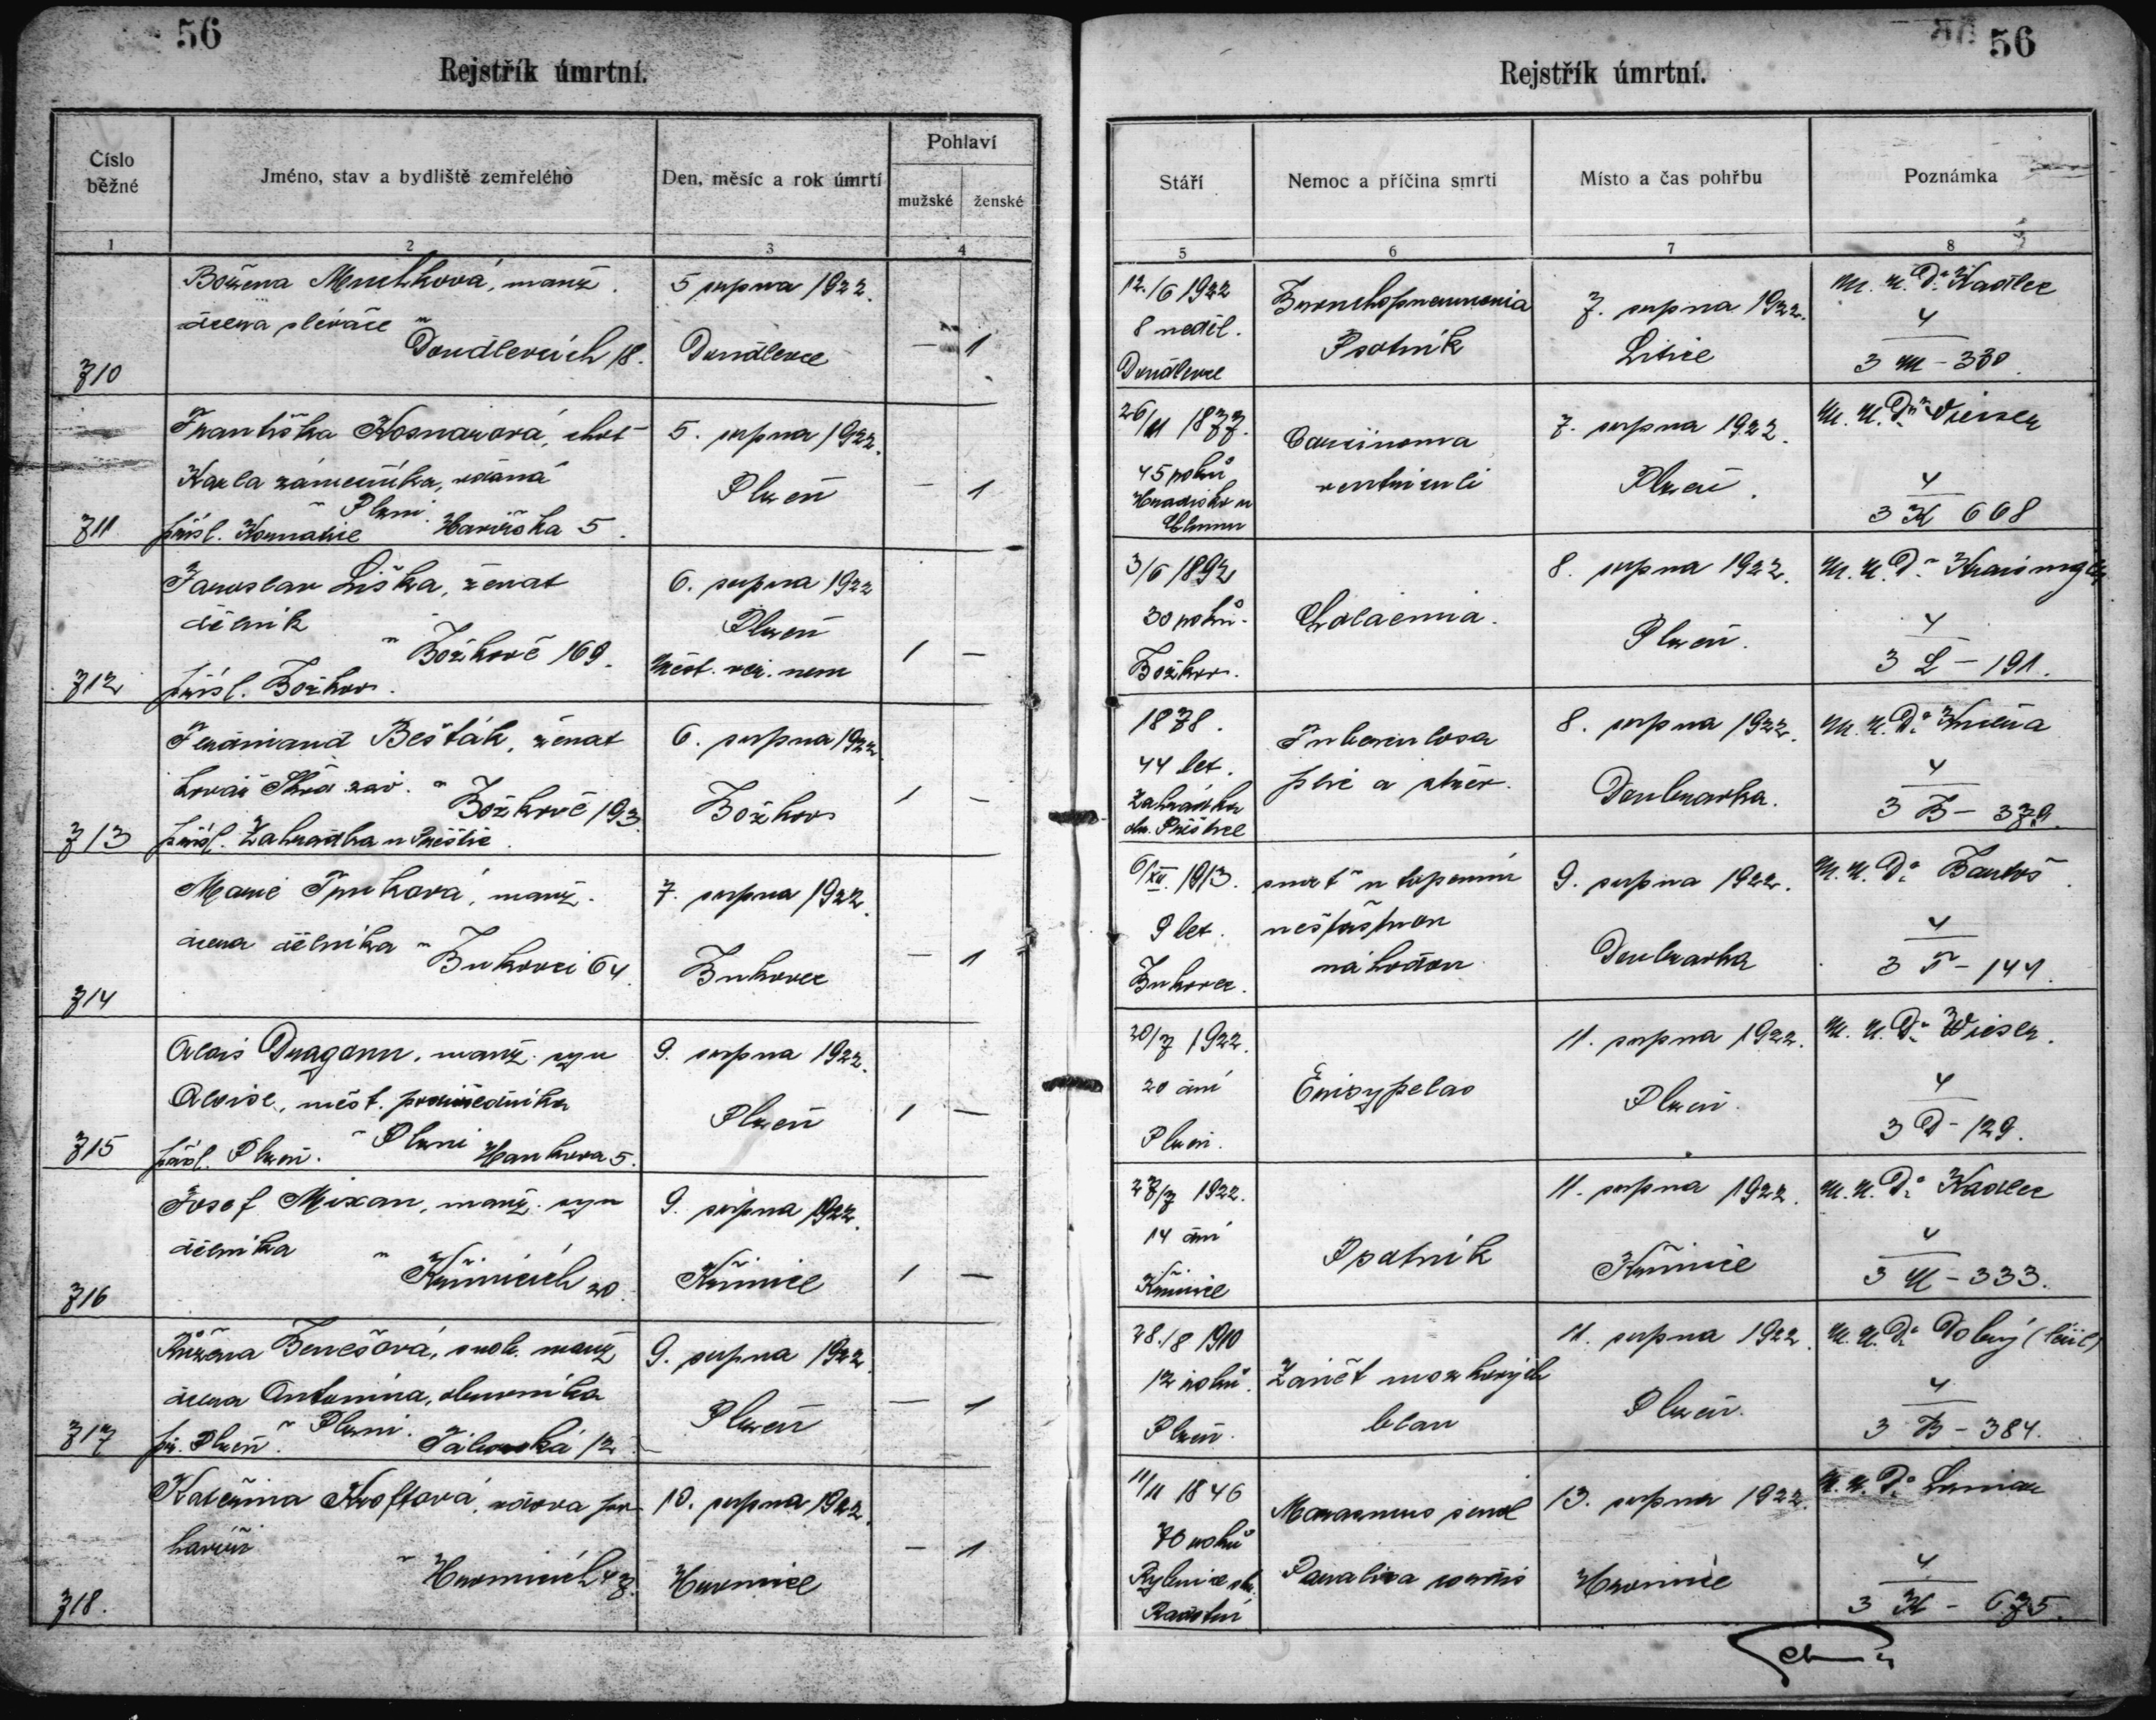 56
Rejstřík úmrtní.
Číslo běžné
Jméno, stav a bydliště zemřelého
Den, měsíc a rok úmrtí
Pohlaví
mužské
ženské
1
2
3
4
710
Božena Muchková, manž.
dcera slévače
v Doudlevcích 18.
5 srpna 1922.
Doudlevce
— 1
711
Františka Kosnarová, choť
Karla zámečníka, vdaná
v Plzni
přísl. Havířská 5.
5. srpna 1922.
Plzeň
— 1
712
Jaroslav Liška, ženat
dělník
v Božkově 169.
přísl. Božkov.
6. srpna 1922
Plzeň
Měst. veř. nem
1 —
713
Ferdinand Bešták, ženat
kovář Škod. záv.
v Božkově 193.
přísl. Zahrádka u Přeštic
6. srpna 1922
Božkov
1 —
714
Marie Trnková, manž.
dcera dělníka
v Bukovci 64.
7. srpna 1922.
Bukovec
— 1
715
Alois Dragoun, manž. syn
Aloise, měst.
přísl. Plzeň. v Plzni Hankova 5.
9. srpna 1922.
Plzeň
1 —
716
Josef Mixan, manž. syn
dělníka
v Křimicích 20.
9. srpna 1922.
Křimice
1 —
717
Růžena Benešová, svob. manž
dcera Antonína, obuvníka
př. Plzeň. v Plzni. Táborská 12
9. srpna 1922.
Plzeň
— 1
718.
Kateřina Kroftová, vdova po
havíři
v Hromnicích 47.
10. srpna 1922.
Hromnice
— 1
56
Rejstřík úmrtní.
Stáří
Nemoc a příčina smrti
Místo a čas pohřbu
Poznámka
5
6
7
8
12./6 1922
8 neděl.
Doudlevce
Bronchopneumonia
Psotník
7. srpna 1922.
Litice
M. U. Dr. Kadlec
4
3 M - 330.
26/11 1877.
45 roků
Carcinoma
ventriculi
7. srpna 1922.
Plzeň.
M. U. Dr. Wiesen
4
3 K 668
3/6 1892
30 roků.
Božkov.
Cholaemia.
8. srpna 1922.
Plzeň.
M. U. Dr.
4
3 L - 191.
1878.
44 let.
Zahrádka
ok. Přeštice
Tuberculosa
plic a střev.
8. srpna 1922.
Doubravka.
M. U. Dr.
4
3 B - 379.
6/XII. 1913.
9 let.
Bukovec.
smrt utopením
nešťastnou
náhodou
9. srpna 1922.
Doubravka
M. U. Dr. Bartoš
4
3 T - 141.
20/7 1922.
20 dní
Plzeň.
Erisypelas
11. srpna 1922.
Plzeň.
M. U. Dr. Wiesen.
4
3 D - 129.
27/7 1922.
14 dní
Křimice
Psotník
11. srpna 1922.
Křimice
M. U. Dr. Kadlec
4
3 M - 333.
28./8 1910
12 roků.
Plzeň.
Zánět mozkových
blan
11. srpna 1922.
Plzeň.
M. U. Dr. Dobrý
4
3 B - 384.
11/11 1846
Rybnice ok.
Marasmus senil
Paralisa cordis
13. srpna 1922.
Hromnice
M. U. Dr.
4
3 K - 675.